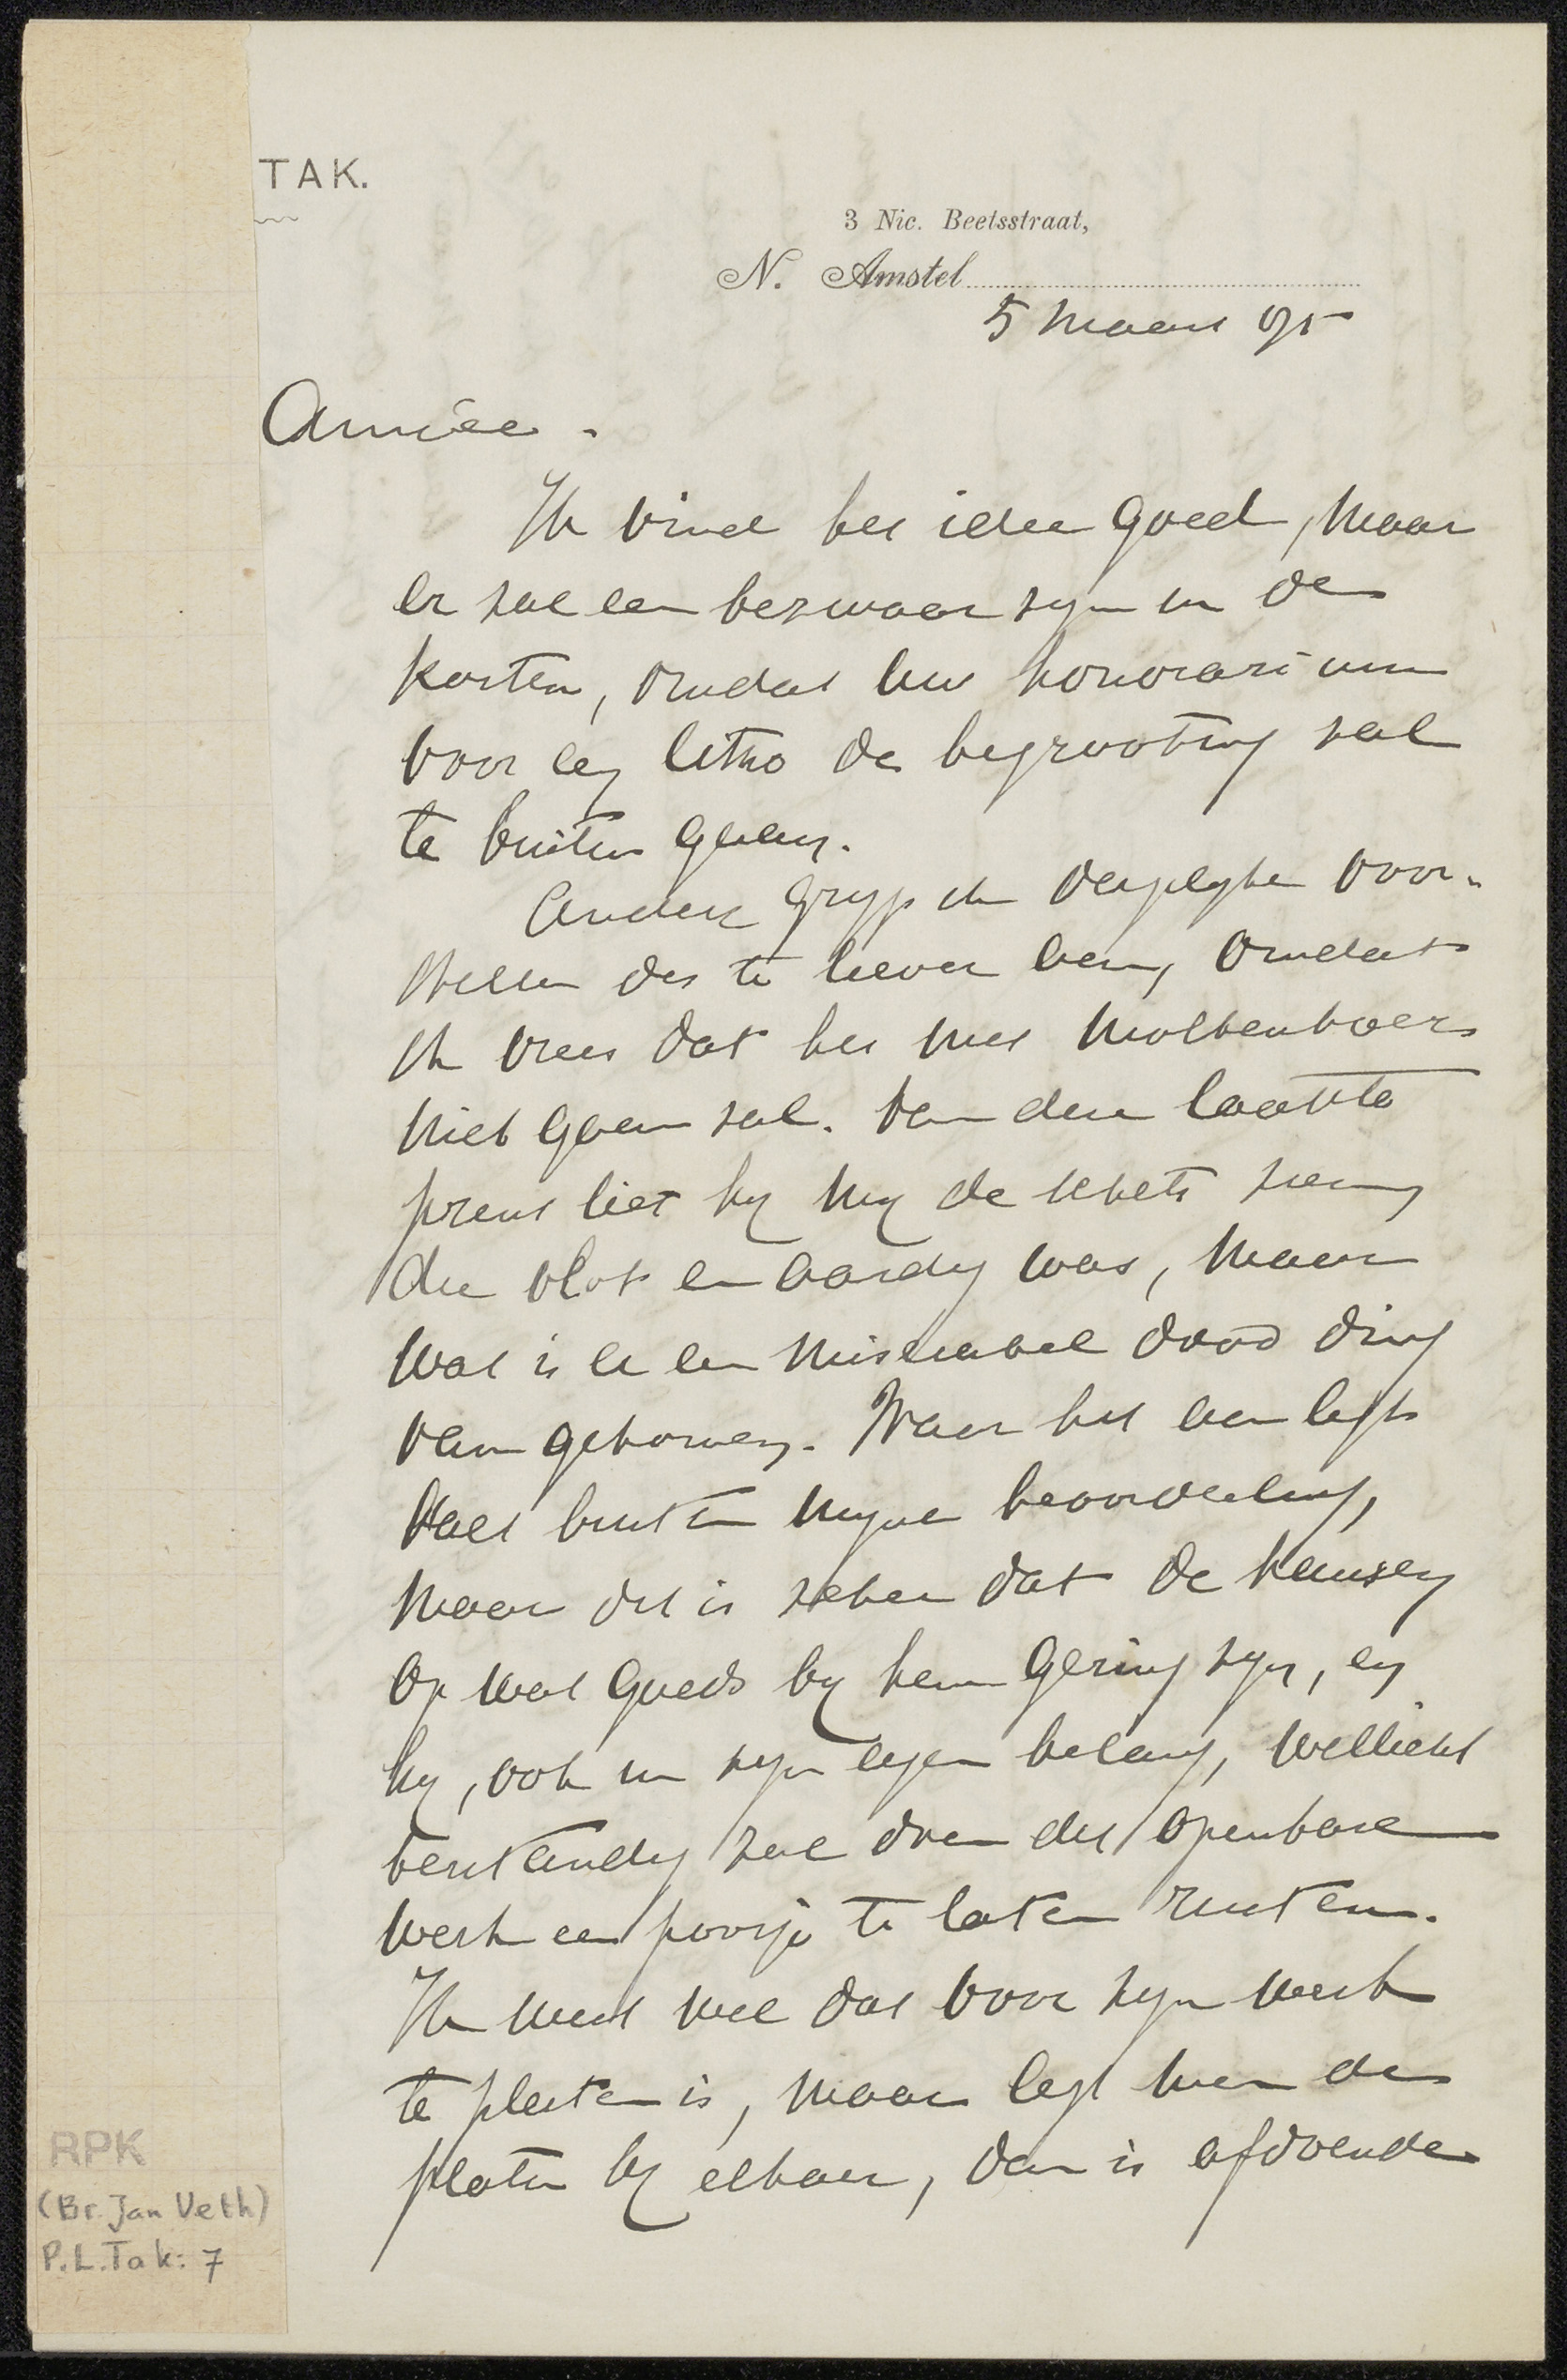 TAK.
3 Nic. Beetsstraat,
N. Amstel
5 Maart 95
Amice.
Ik vind het idee goed, maar
er zal een bezwaar zyn in de
kosten, omdat uw honorarium
voor een litho de begrooting zal
te buiten gaan.
Anders gryp ik dergelyke voor-
stellen des te liever aan, omdat
ik vrees dat het met Molkenboer
niet gaan zal. Van deze laatste
prent liet hy my de schets zien
die vlot en aardig was, maar
wat is er een miserabel dood ding
van geworden. Waar het aan ligt
valt buiten myne beoordeeling,
maar dit is zeker dat de kansen
op wat goeds by hem gering zyn, en
hy, ook in zyn eigen belang, wellicht
verstandig zal doen dit openbare
werk een poosje te laten rusten.
Ik weet wel dat voor zyn werk
te pleiten is, maar legt men de
platen by elkaar, dan is afdoende
RPK
(Br. Jan Veth)
P.L.Tak: 7